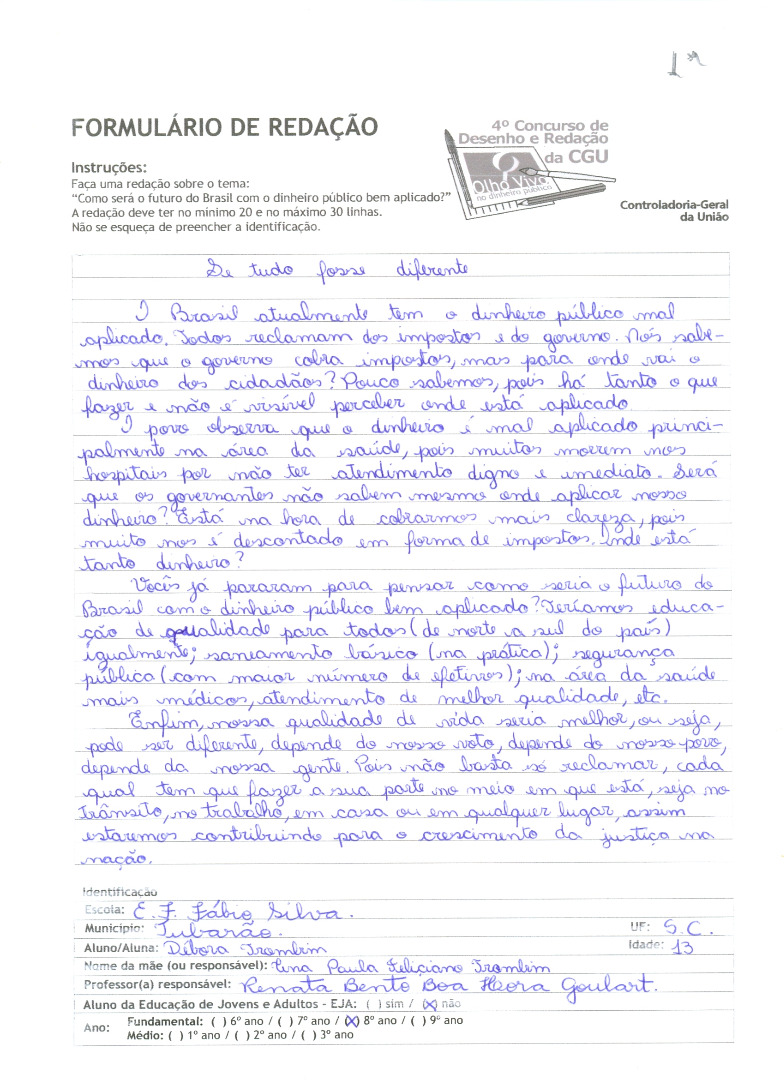 1ª
FORMULÁRIO DE REDAÇÃO
4º Concurso de
Desenho e Redação
da CGU
Olho Vivo
no dinheiro público
Controladoria-Geral
da União
Instruções:
Faça uma redação sobre o tema:
"Como será o futuro do Brasil com o dinheiro público bem aplicado?"
A redação deve ter no mínimo 20 e no máximo 30 linhas.
Não se esqueça de preencher a identificação.
Se tudo fosse diferente
O Brasil atualmente tem o dinheiro público mal
aplicado. Todos reclamam dos impostos e do governo. Nós sabe-
mos que o governo cobra impostos, mas para onde vai o
dinheiro dos cidadãos? Pouco sabemos, pois há tanto o que
fazer e não é visível perceber onde está aplicado.
O povo observa que o dinheiro é mal aplicado princi-
palmente na área da saúde, pois muitos morrem nos
hospitais por não ter atendimento digno e imediato. Será
que os governantes não sabem mesmo onde aplicar nosso
dinheiro? Está na hora de cobrarmos mais clareza, pois
muito nos é descontado em forma de impostos. Onde está
tanto dinheiro?
Vocês já pararam para pensar como seria o futuro do
Brasil com o dinheiro público bem aplicado? Teríamos educa-
ção de qualidade para todos (de norte a sul do país)
igualmente; saneamento básico (na prática); segurança
pública (com maior número de efetivos); na área da saúde
mais médicos, atendimento de melhor qualidade, etc.
Enfim, nossa qualidade de vida seria melhor, ou seja,
pode ser diferente, depende do nosso voto, depende do nosso povo,
depende da nossa gente. Pois não basta só reclamar, cada
qual tem que fazer a sua parte no meio em que está, seja no
trânsito, no trabalho, em casa ou em qualquer lugar, assim
estaremos contribuindo para o crescimento da justiça na
nação.
Identificação
Escola: E. F. Fábio Silva.
Município: Tubarão. UF: S.C.
Aluno/Aluna: Débora Trombim Idade: 13
Nome da mãe (ou responsável): Ana Paula Feliciano Trombim
Professor(a) responsável: Renata Bento Boa Hora Goulart.
Aluno da Educação de Jovens e Adultos - EJA: ( ) sim / (X) não
Ano: Fundamental: ( ) 6º ano / ( ) 7º ano / (X) 8º ano / ( ) 9º ano
Médio: ( ) 1º ano / ( ) 2º ano / ( ) 3º ano